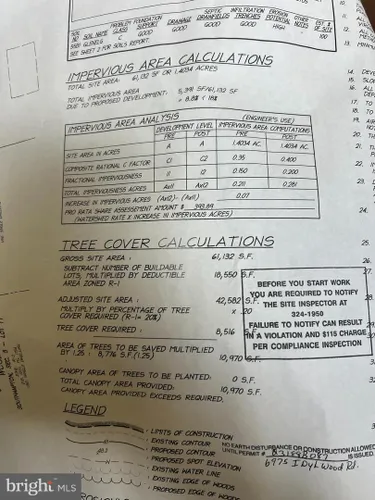 PROBLEM FOUNDATION
SOIL NAME CLASS SUPPORT DRAINAGE DRAINFIELDS TRENCHES POTENTIAL NOTES OF SITE
SEPTIC INFILTRATION EROSION OTHER EST %
GLENELG C GOOD GOOD GOOD GOOD HIGH
SEE SHEET 2 FOR SOILS REPORT.
IMPERVIOUS AREA CALCULATIONS
TOTAL SITE AREA: 61,132 SF OR 1.4034 ACRES
TOTAL IMPERVIOUS AREA 5,391 SF/61,132 SF
DUE TO PROPOSED DEVELOPMENT:
IMPERVIOUS AREA ANALYSIS (ENGINEER'S USE)
DEVELOPMENT LEVEL IMPERVIOUS AREA COMPUTATIONS
PRE POST PRE POST
SITE AREA IN ACRES A A 1.4034 AC. 1.4034 AC.
COMPOSITE RATIONAL C FACTOR C1 C2 0.35 0.400
FRACTIONAL IMPERVIOUSNESS I1 I2 0.150 0.200
TOTAL IMPERVIOUS ACRES AxI1 AxI2 0.211 0.281
INCREASE IN IMPERVIOUS ACRES (AxI2)-(AxI1) 0.07
PRO RATA SHARE ASSESSEMENT AMOUNT $
(WATERSHED RATE X INCREASE IN IMPERVIOUS ACRES)
TREE COVER CALCULATIONS
GROSS SITE AREA : 61,132 S.F.
SUBTRACT NUMBER OF BUILDABLE
LOTS, MULTIPLIED BY DEDUCTIBLE 18,550 S.F.
AREA ZONED R-1
ADJUSTED SITE AREA : 42,582 S.F.
MULTIPLY BY PERCENTAGE OF TREE x .20
COVER REQUIRED (R-1= 20%)
TREE COVER REQUIRED : 8,516 S.F.
AREA OF TREES TO BE SAVED MULTIPLIED
BY 1.25 : 8,776 S.F.(1.25) 10,970 S.F.
CANOPY AREA OF TREES TO BE PLANTED: 0 S.F.
TOTAL CANOPY AREA PROVIDED: 10,970 S.F.
CANOPY AREA PROVIDED EXCEEDS REQUIRED.
BEFORE YOU START WORK
YOU ARE REQUIRED TO NOTIFY
THE SITE INSPECTOR AT
324-1950
FAILURE TO NOTIFY CAN RESULT
IN A VIOLATION AND $115 CHARGE
PER COMPLIANCE INSPECTION
LEGEND
LIMITS OF CONSTRUCTION
EXISTING CONTOUR
PROPOSED CONTOUR
PROPOSED SPOT ELEVATION
EXISTING WATER LINE
EXISTING EDGE OF WOODS
PROPOSED EDGE OF WOODS
NO EARTH DISTURBANCE OR CONSTRUCTION ALLOWED
UNTIL PERMIT # IS ISSUED.
6775 Dylwood Rd.
bright MLS